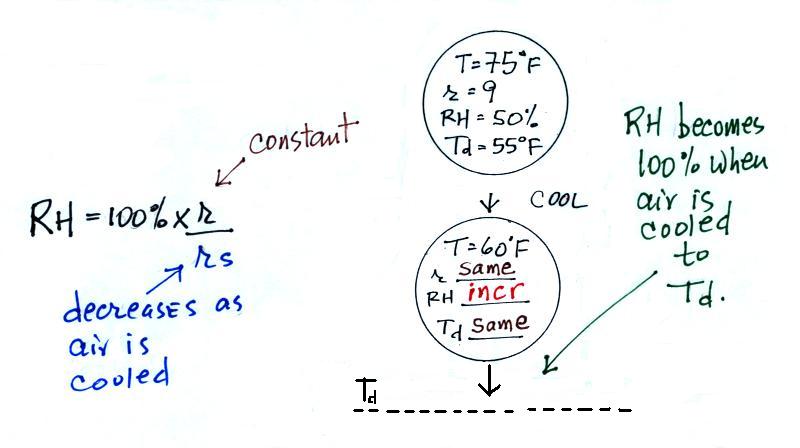 RH = 100% x r
rs
constant
decreases as
air is
cooled
T = 75°F
r = 9
RH = 50%
Td = 55°F
COOL
T = 60°F
r same
RH incr
Td same
Td
RH becomes
100% when
air is
cooled
to
Td.